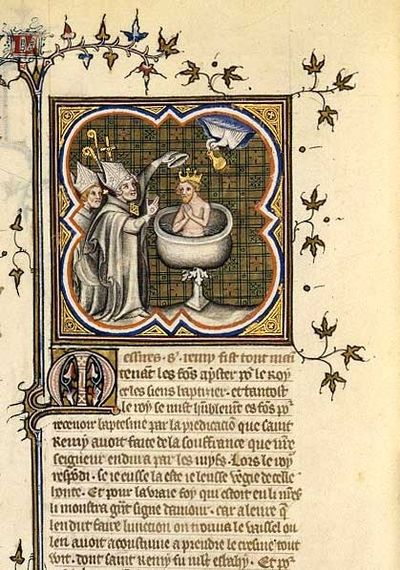 Messires .s. remy fist tont mai
tenãt les fõs aprster pº le Roy
et les siens baptisier. et tantost
le roy se mist hũblemẽt es fõs pº
recevoir baptesme par la predicaciõ que saint
Remy auoit faite de la souffrance que nr̃e
seigneur endura par les iuyfs. Lors le roy
respõdi. se ieusse la este ie leusse vẽgie de celle
honte. Et pour la vraie foy qui estoit en li nr̃es
li monstra grãt signe damour. car a leure q̃
len dut faire lunction on trouua le vaissel ou
len auoit acoustume a prendre le cresme tout
voit. dont saint Remy fu mlt esbahy. Et pº